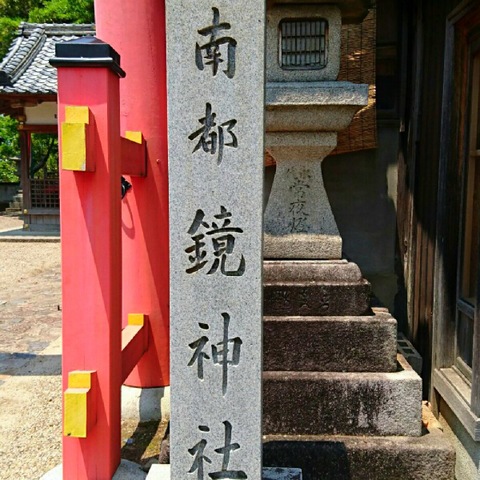 南都鏡神社
常夜燈